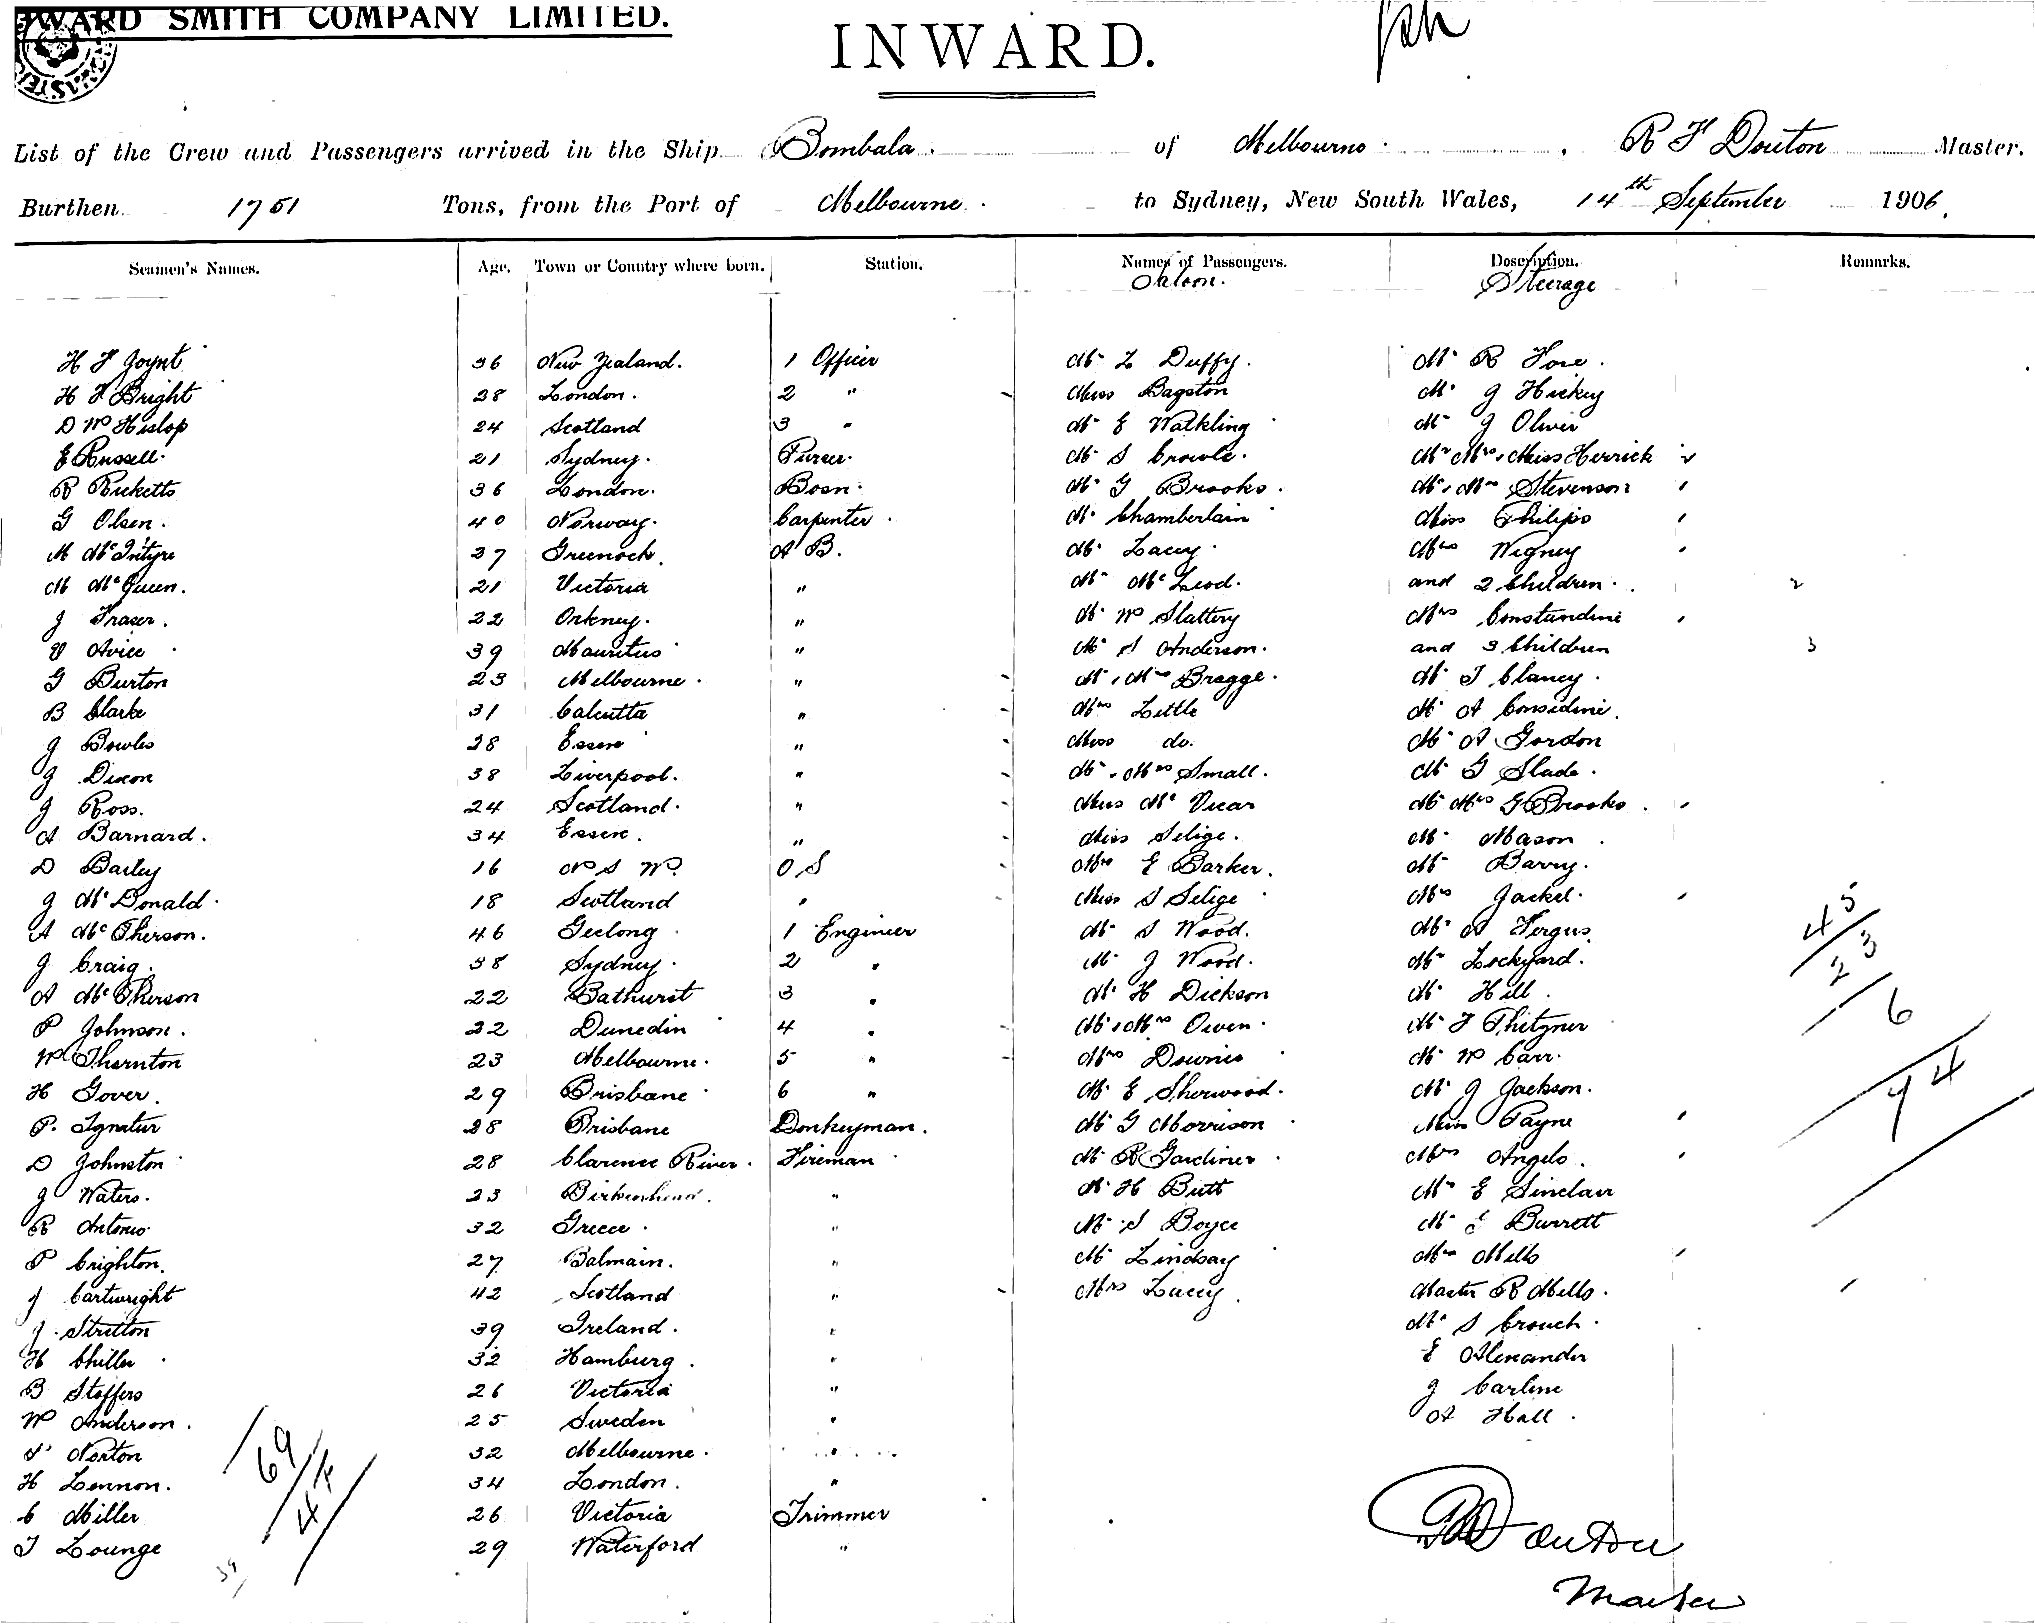 WARD SMITH COMPANY LIMITED.
INWARD.
List of the Crew and Passengers arrived in the Ship Bombala. of Melbourne. R F Douton Master.
Burthen 1751 Tons, from the Port of Melbourne. to Sydney, New South Wales, 14th September 1906.
Seamen's Names. Age. Town or Country where born. Station. Names of Passengers. Description. Remarks.
Saloon. Steerage
H F Joynt 36 New Zealand. 1 Officer Mr L Duffy. Mr R Fore.
H F Bright 28 London. 2 " Miss Bagston Mr J Hickey
D W Hislop 24 Scotland 3 " Mr E Watkling Mr J Oliver
E Russell. 21 Sydney. Purser. Mr S Crowle. Mr Mrs, Miss Herrick
R Ricketts 36 London. Bosn. Mr G Brooks. Mr, Mrs Stevenson
G Olsen. 40 Norway. Carpenter. Mr Chamberlain Miss Philips
M McIntyre 37 Greenock. A B. Mr Lacey. Mrs Wigney
M McQueen. 21 Victoria " Mr McLeod. and 2 Children. 2
J Fraser. 22 Orkney. " Mr W Slattery Mrs Constandine
V Avice 39 Mauritus " Mr S Anderson. and 3 Children 3
G Burton 23 Melbourne. " Mr, Mrs Bragge. Mr T Clancy.
B Clarke 31 Calcutta " Mrs Little Mr A Considine.
J Bowles 28 Essex " Miss do. Mr A Gordon
J Dixon 38 Liverpool. " Mr, Mrs Small. Mr G Slade.
J Ross. 24 Scotland. " Miss McVicar Mr Mrs G Brooks.
A Barnard. 34 Essex. " Miss Selige. Mr Mason
D Bailey 16 N S W. O S Mrs E Barker. Mr Barry.
J McDonald. 18 Scotland " Miss S Selige Mrs Jackel.
A McPherson. 46 Geelong 1 Engineer Mr S Wood. Mr A Fergus. 45
J Craig. 38 Sydney. 2 " Mr J Wood. Mr Lockyard. 23
A McPherson 22 Bathurst 3 " Mr H Dickson Mr Hill. 6
P Johnson. 22 Dunedin 4 " Mr, Mrs Owen. Mr F Phitzner
W Thornton 23 Melbourne. 5 " Mrs Downie Mr W Carr. 74
H Gover. 29 Brisbane 6 " Mr E Sherwood. Mr J Jackson.
P. Ignatur 28 Brisbane Donkeyman. Mr G Morrison Miss Payne
D Johnston 28 Clarence River. Fireman Mr R Gardiner Mrs Angelo.
J Waters. 23 Birkenhead. " Mr H Butt Mr E Sinclair
R Antonio 32 Greece. " Mr S Boyce Mr E Burrett
P Crighton. 27 Balmain. " Mr Lindsay Mrs Mills
J Cartwright 42 Scotland " Mrs Lacey. Master R Mills.
J. Stretton 39 Ireland. " Mr S Crouch.
H Chiller 32 Hamburg. " E Alexander
B Stoffers 26 Victoria " J Carline
W Anderson. 25 Sweden " A Hall.
S Norton 32 Melbourne. " 69
H Lennon. 34 London. "
C Miller 26 Victoria Trimmer
T Lounge 29 Waterford "
R F Douton
Master